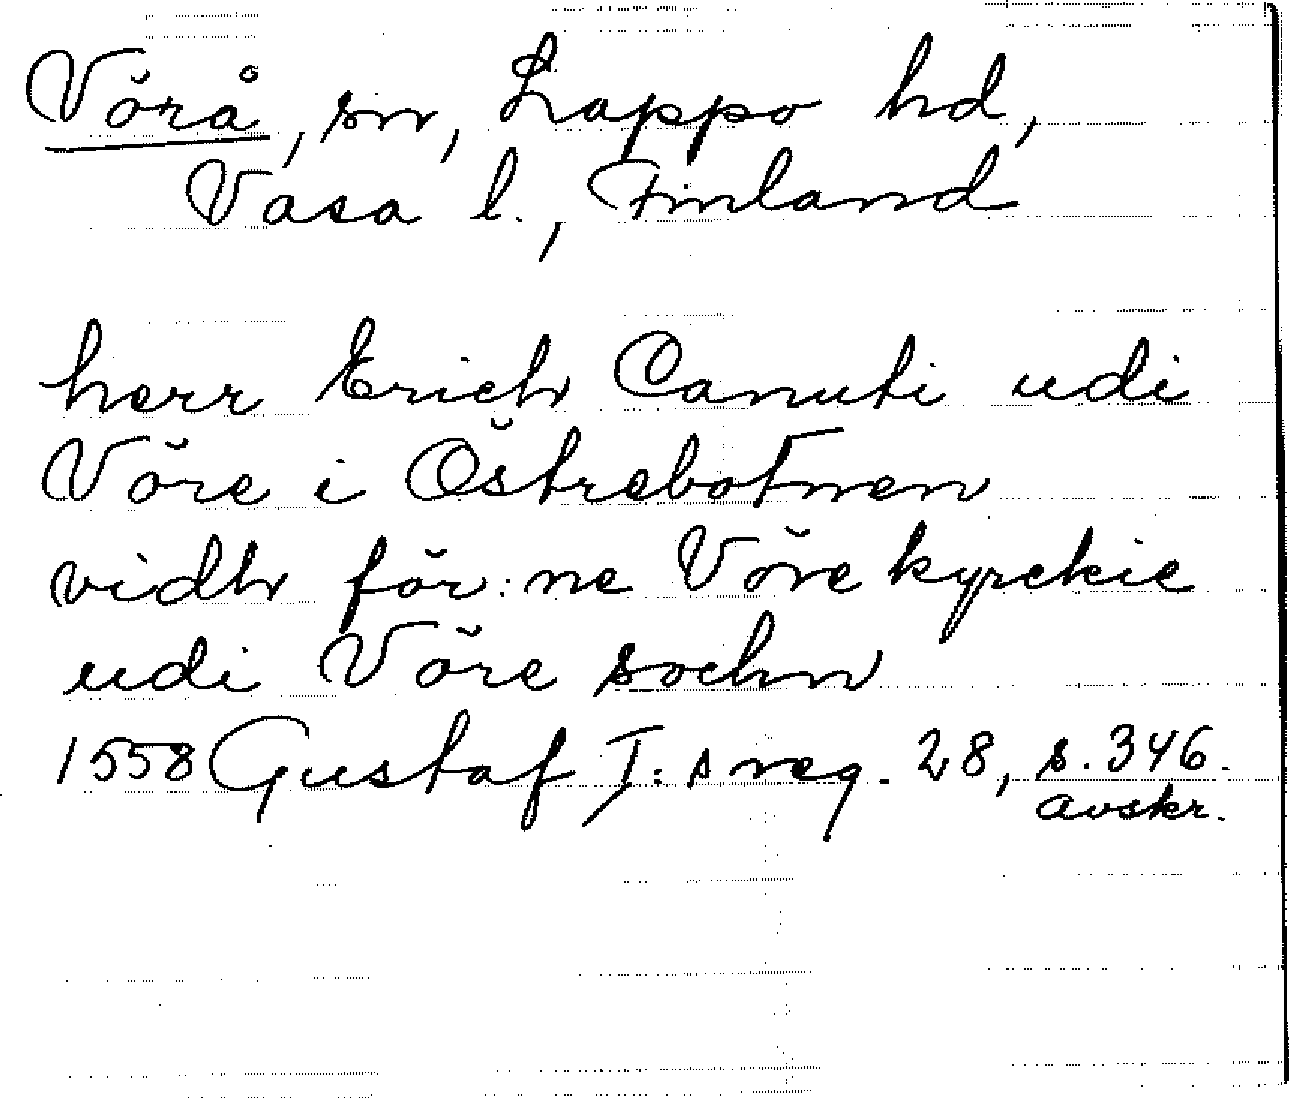 Vörå, sn, Lappo hd,
Vasa l., Finland
herr Erich Canuti udi
Vöre i Östrebotnen
vidh för:ne Vöre kyrckie
udi Vöre sochn
1558 Gustaf I:s reg. 28, s. 346.
avskr.